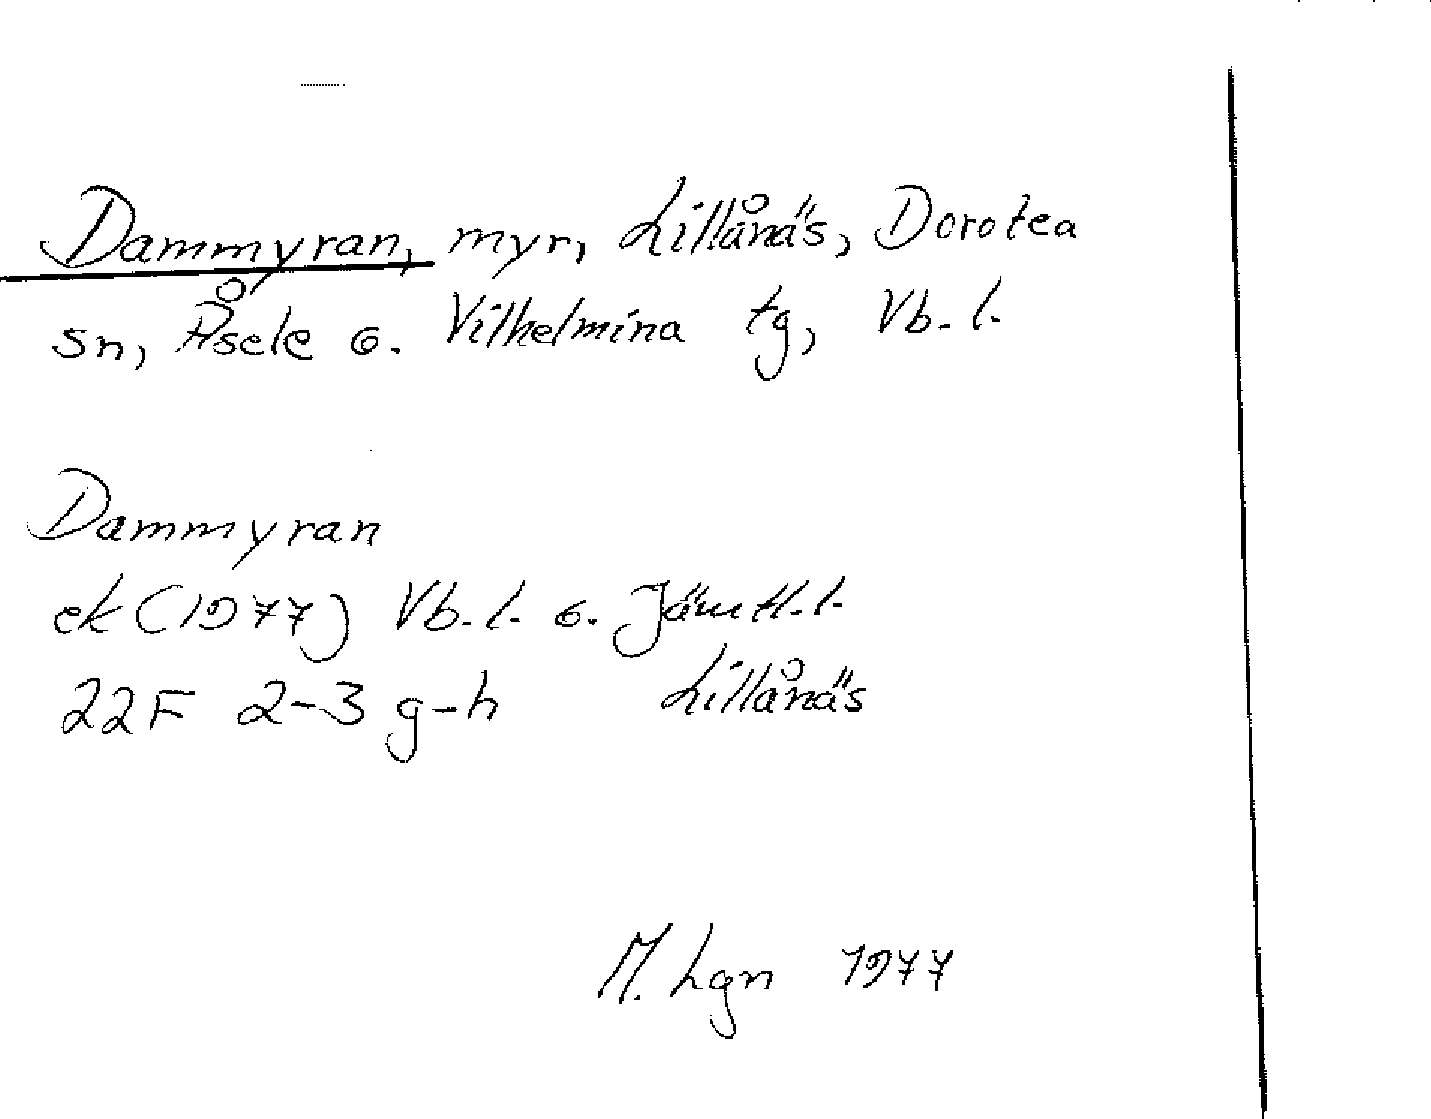 Dammyran, myr, Lillånäs, Dorotea
sn, Åsele o. Vilhelmina tg, Vb. l.
Dammyran
ek (1977) Vb. l. o. Jämtl. l.
22F 2-3 g-h Lillånäs
M. Lgn 1977